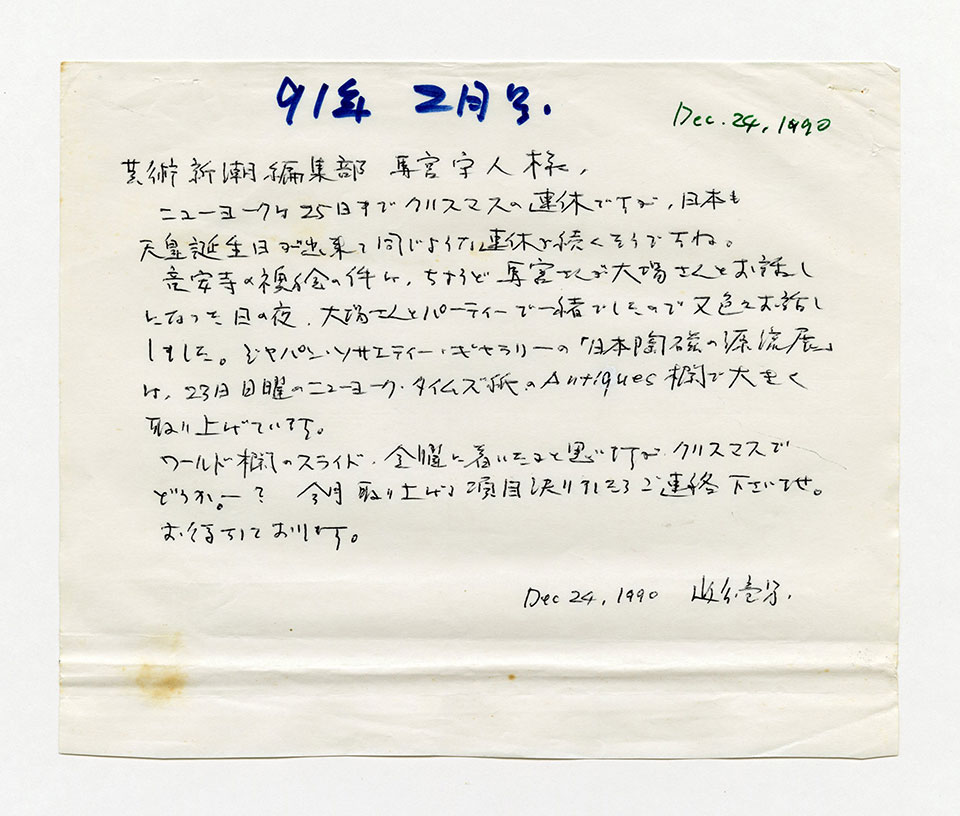 91年 2月号.
Dec. 24, 1990
芸術新潮編集部 馬宮宇人様,
ニューヨークは25日までクリスマスの連休ですが, 日本も
天皇誕生日が出来て同じような連休が続くそうですね。
竜安寺の襖絵の件は, ちょうど馬宮さんが大場さんとお話し
になった日の夜, 大場さんとパーティーで一緒でしたので又色々お話し
しました。ジャパン・ソサエティー・ギャラリーの「日本陶磁の源流展」
は, 23日日曜のニューヨーク・タイムズ紙のAntiques欄で大きく
取り上げています。
ワールド欄のスライド, 金曜に着いたと思いますが, クリスマスで
どうか。ー? 今月取り上げる項目決りましたらご連絡下さいませ。
お待ちしております。
Dec 24, 1990